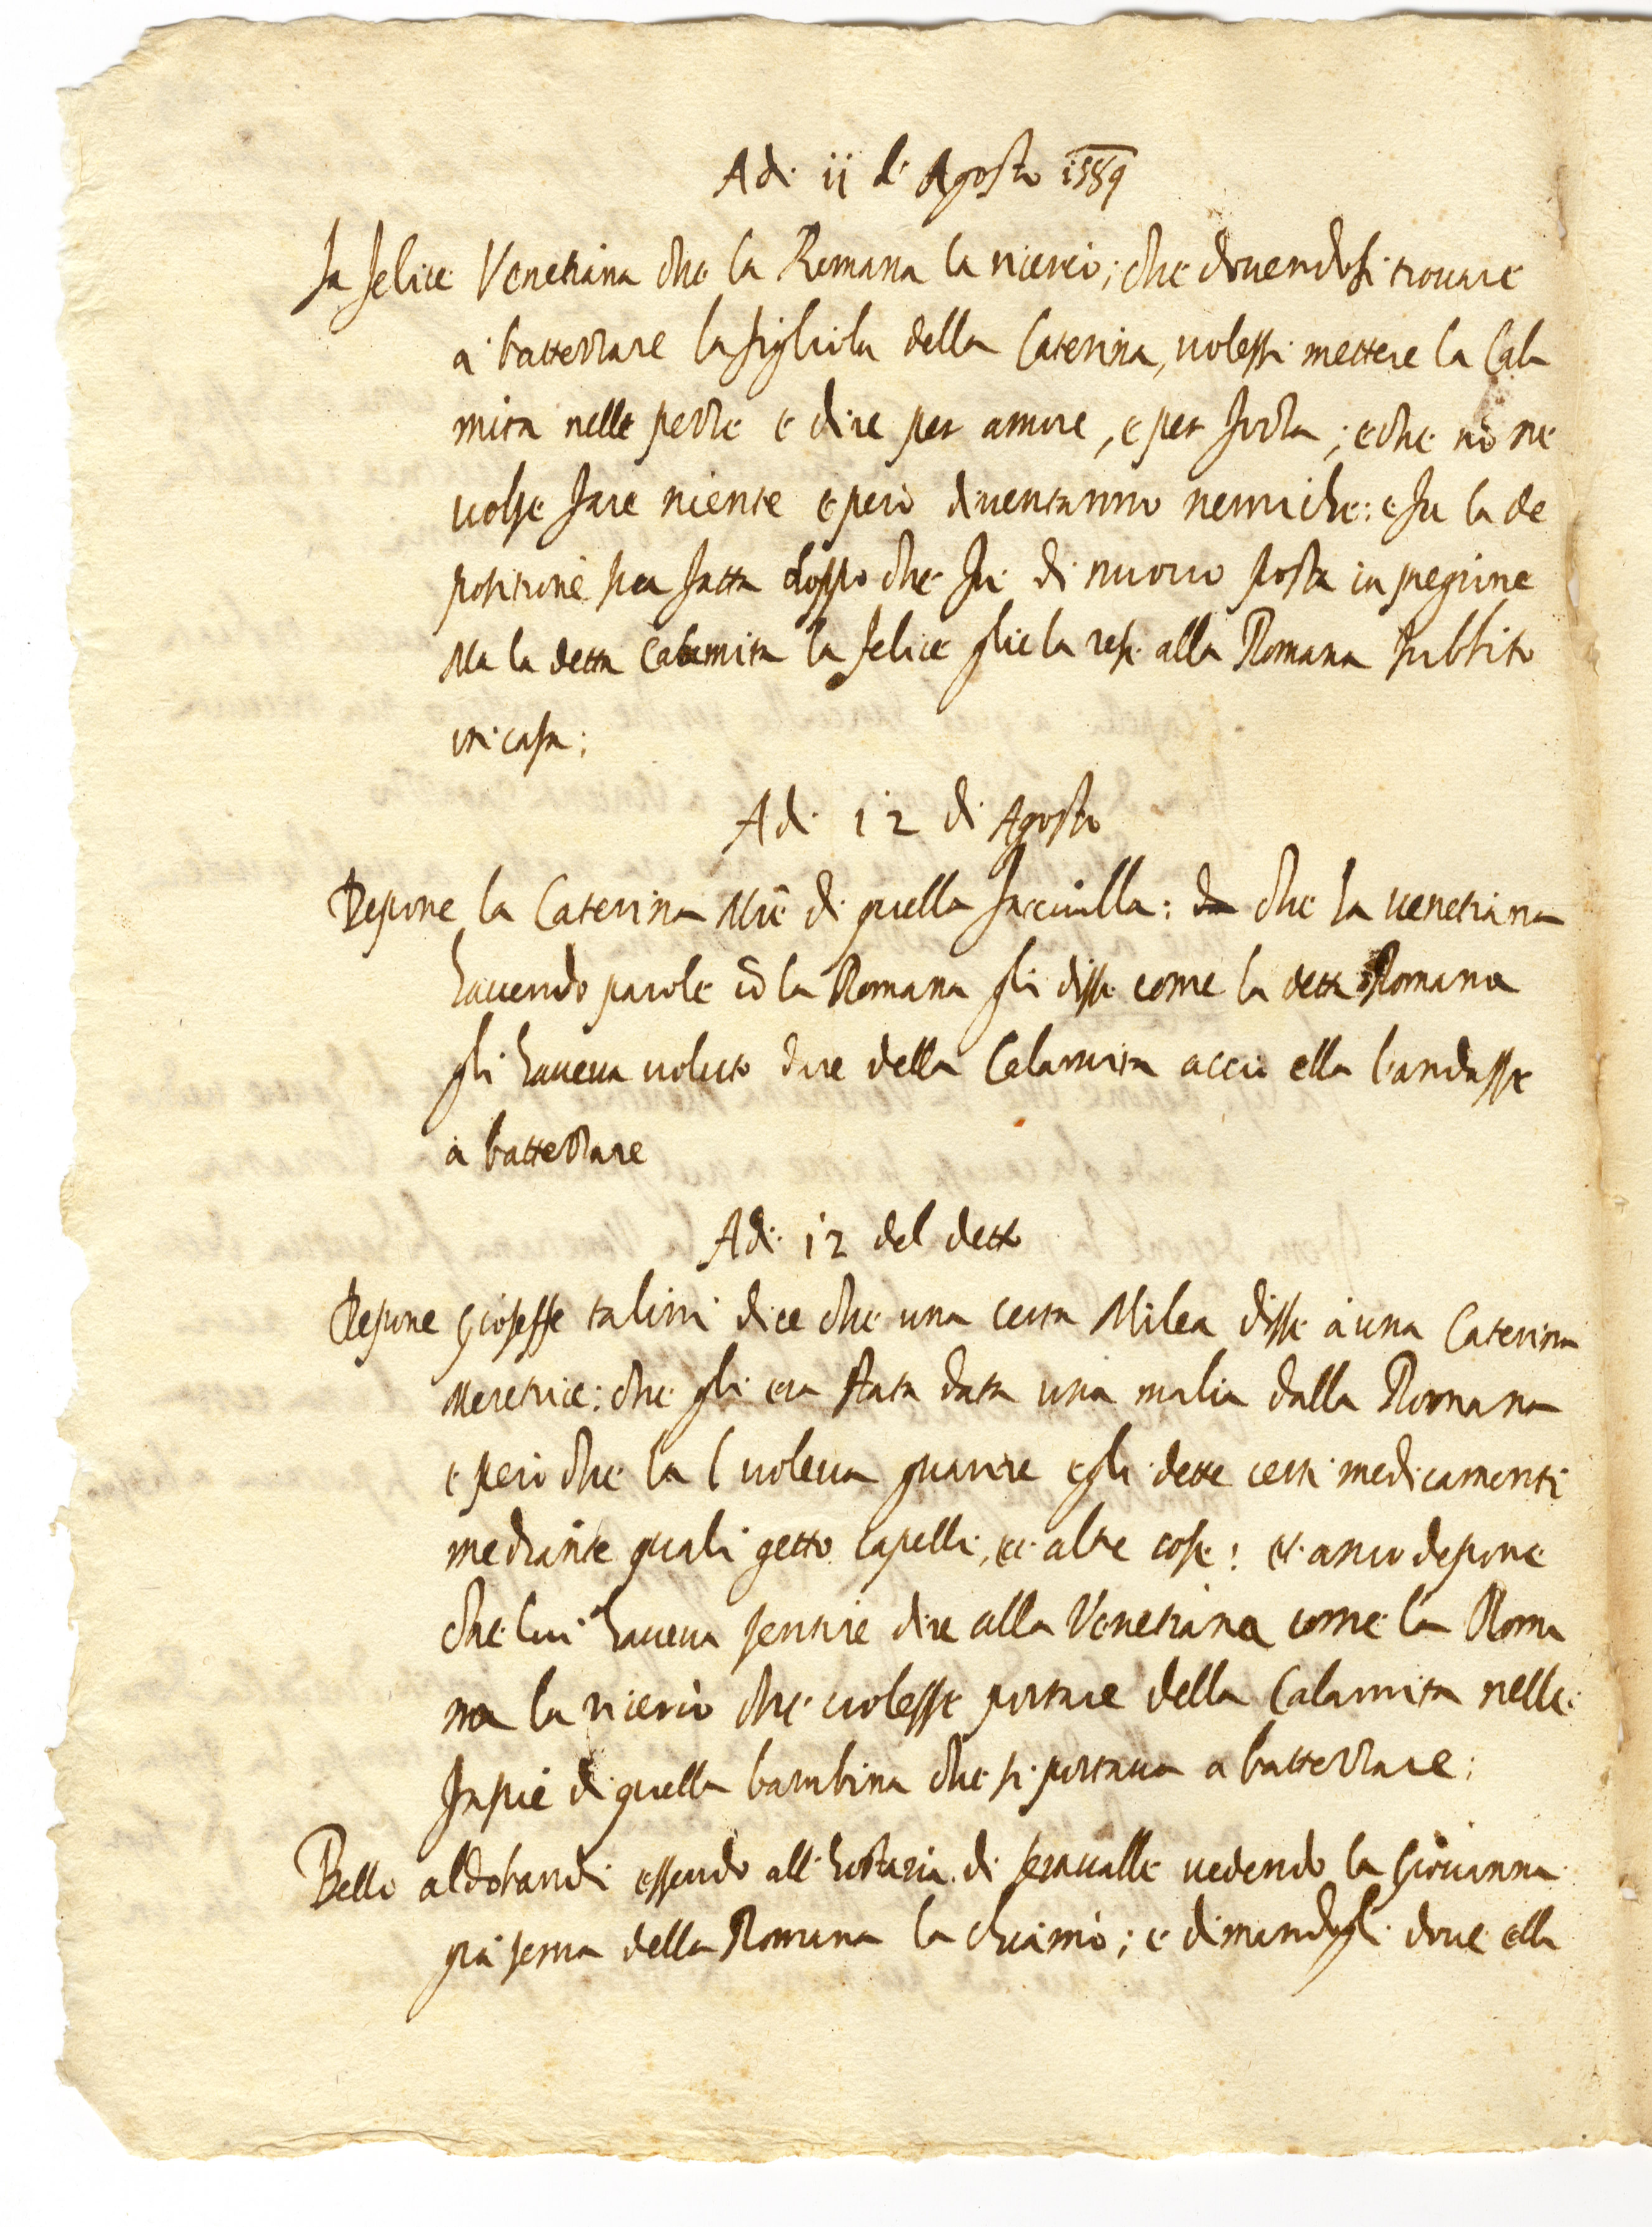 Adi ii di Agosto 1589
La felice Venetiana che la Romana la ricercò; che douendosi trouare
a battezzare la figliola della Caterina, uolessi mettere la Cala
mita nelle pezze e dire per amore, e per forza; e che nō ne
uolse fare niente e però diuentorno nemiche: e fu la de
positione sua fatta doppo che fu di nuouo posta in pregione
Ma la detta Calamita la felice glie la rese alla Romana subbito
in casa;
Adi 12 di Agosto
Depone la Caterina Mře di quella fanciulla: che la uenetiana
hauendo parole cō la Romana gli disse come la detta Romana
gli haueua uoluto dare della Calamita acciò ella l'andasse
a battezzare
Adi 12 del detto
Depone Gioseffe talini dice che una certa Milea disse a una Caterina
Meretrice: che gli era stata data una malia dalla Romana
e però che la l uoleua guarire e gli dette certi medicamenti
mediante quali getto capelli, et altre cose: et anco depone
che lui haueua sentire dire alla Venetiana come la Roma
na la ricercò che uolesse portare della Calamita nelle
fascie di quella bambina che si portaua a battezzare;
Bello aldobrandi essendo all'hostaria di seraualle uedendo la Giouanna
già serua della Romana la chiamò; e dimandogli doue ella